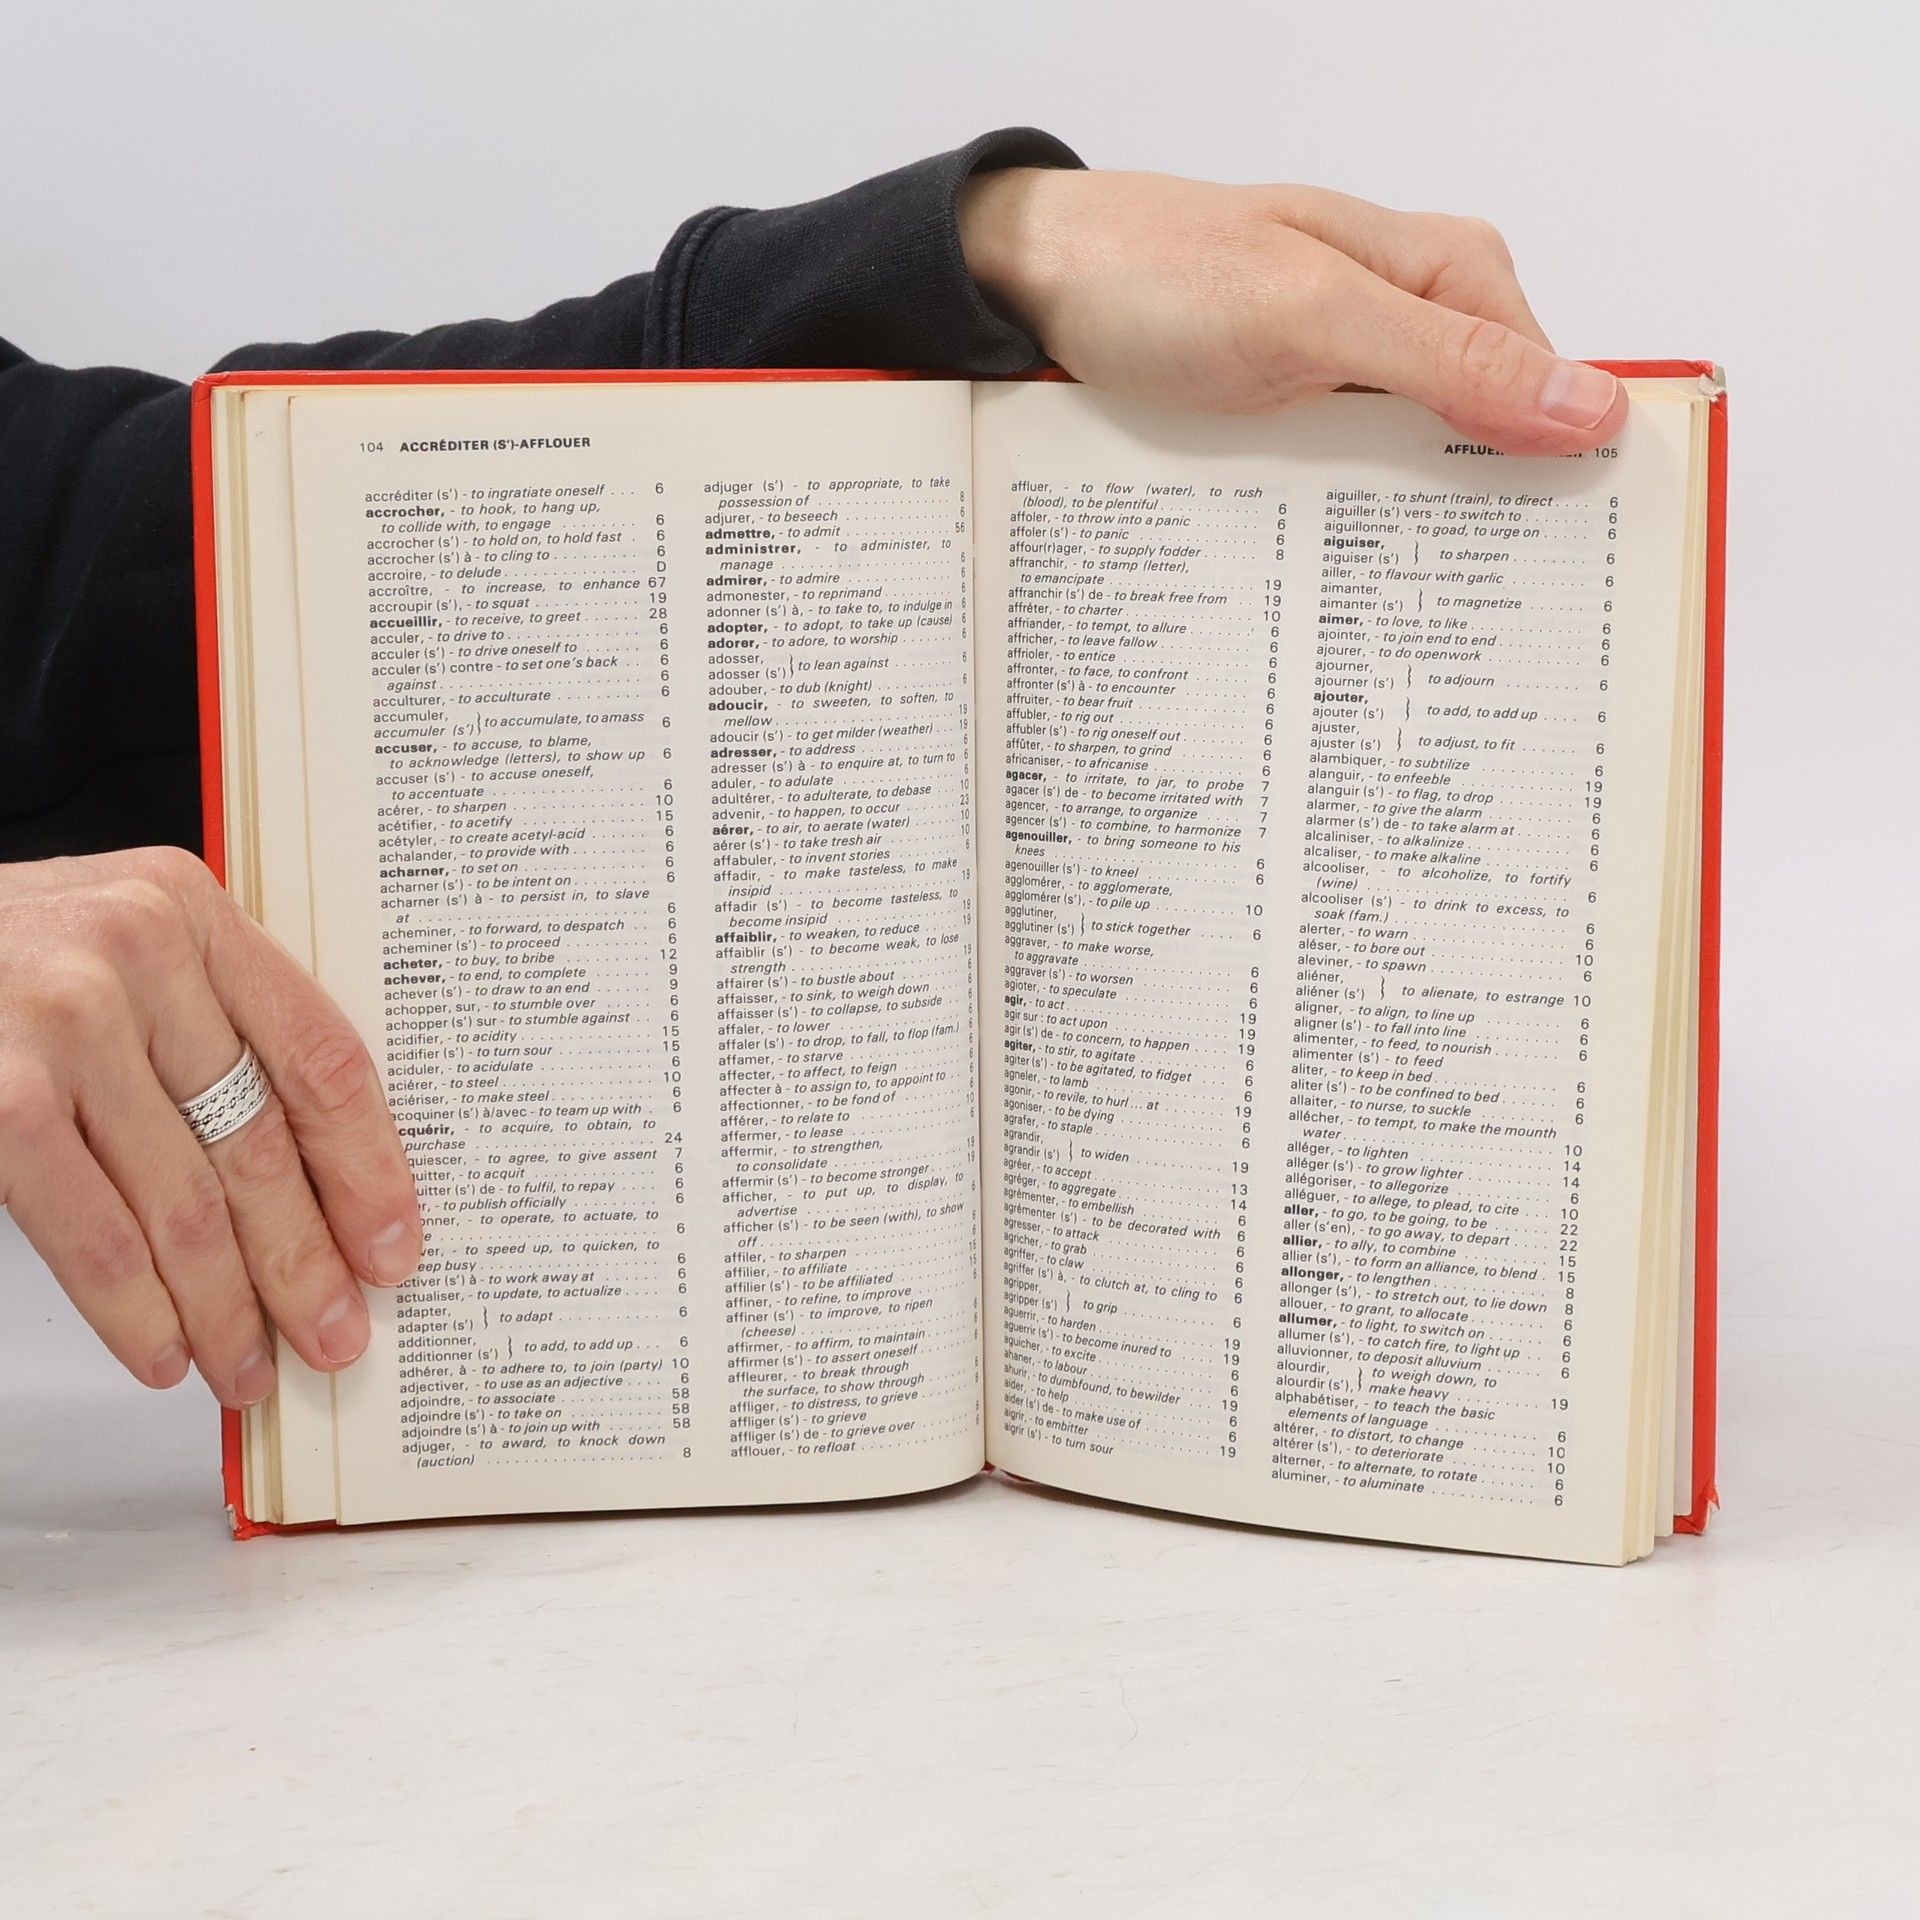 104 ACCRÉDITER (S')-AFFLOUER
accréditer (s') - to ingratiate oneself ... 6
accrocher, - to hook, to hang up,
to collide with, to engage ........ 6
accrocher (s') - to hold on, to hold fast . 6
accrocher (s') à - to cling to ......... 6
accroire, - to delude .............. D
accroître, - to increase, to enhance 67
accroupir (s'), - to squat ........... 19
accueillir, - to receive, to greet ...... 28
acculer, - to drive to .............. 6
acculer (s') - to drive oneself to ...... 6
acculer (s') contre - to set one's back .. 6
against .................... 6
acculturer, - to acculturate ......... 6
accumuler,
accumuler (s') } to accumulate, to amass 6
accuser, - to accuse, to blame,
to acknowledge (letters), to show up 6
accuser (s') - to accuse oneself,
to accentuate ............... 6
acérer, - to sharpen .............. 10
acétifier, - to acetify ............. 15
acétyler, - to create acetyl-acid ...... 6
achalander, - to provide with ........ 6
acharner, - to set on ............. 6
acharner (s') - to be intent on ........ 6
acharner (s') à - to persist in, to slave
at ....................... 6
acheminer, - to forward, to despatch .. 6
acheminer (s') - to proceed ......... 6
acheter, - to buy, to bribe .......... 12
achever, - to end, to complete ....... 9
achever (s') - to draw to an end ...... 9
achopper, sur, - to stumble over ..... 6
achopper (s') sur - to stumble against .. 6
acidifier, - to acidity .............. 15
acidifier (s') - to turn sour .......... 15
aciduler, - to acidulate ............ 6
aciérer, - to steel ................ 10
aciériser, - to make steel ........... 6
acoquiner (s') à/avec - to team up with . 6
cquérir, - to acquire, to obtain, to
purchase .................. 24
quiescer, - to agree, to give assent 7
uitter, - to acquit .............. 6
uitter (s') de - to fulfil, to repay .... 6
r, - to publish officially .......... 6
onner, - to operate, to actuate, to
e ....................... 6
ver, - to speed up, to quicken, to
eep busy .................. 6
activer (s') à - to work away at ...... 6
actualiser, - to update, to actualize .... 6
adapter,
adapter (s') } to adapt .......... 6
additionner,
additionner (s') } to add, to add up ... 6
adhérer, à - to adhere to, to join (party) 10
adjectiver, - to use as an adjective .... 6
adjoindre, - to associate ........... 58
adjoindre (s') - to take on .......... 58
adjoindre (s') à - to join up with ...... 58
adjuger, - to award, to knock down
(auction) .................. 8
adjuger (s') - to appropriate, to take
possession of ................ 8
adjurer, - to beseech ............. 6
admettre, - to admit .............. 56
administrer, - to administer, to
manage .................. 6
admirer, - to admire .............. 6
admonester, - to reprimand ......... 6
adonner (s') à, - to take to, to indulge in 6
adopter, - to adopt, to take up (cause) 6
adorer, - to adore, to worship ....... 6
adosser,
adosser (s') } to lean against ....... 6
adouber, - to dub (knight) .......... 6
adoucir, - to sweeten, to soften, to
mellow .................... 19
adoucir (s') - to get milder (weather) ... 19
adresser, - to address ............ 6
adresser (s') à - to enquire at, to turn to 6
aduler, - to adulate .............. 6
adultérer, - to adulterate, to debase ... 10
advenir, - to happen, to occur ....... 23
aérer, - to air, to aerate (water) ..... 10
aérer (s') - to take tresh air ......... 10
affabuler, - to invent stories ........ 6
affadir, - to make tasteless, to make
insipid .................... 19
affadir (s') - to become tasteless, to
become insipid .............. 19
affaiblir, - to weaken, to reduce ..... 19
affaiblir (s') - to become weak, to lose
strength ................... 19
affairer (s') - to bustle about ........ 6
affaisser, - to sink, to weigh down .... 6
affaisser (s') - to collapse, to subside .. 6
affaler, - to lower ............... 6
affaler (s') - to drop, to fall, to flop (fam.) 6
affamer, - to starve .............. 6
affecter, - to affect, to feign ........ 6
affecter à - to assign to, to appoint to .. 6
affectionner, - to be fond of ........ 6
afférer, - to relate to ............. 10
affermer, - to lease .............. 6
affermir, - to strengthen,
to consolidate ............... 19
affermir (s') - to become stronger ..... 19
afficher, - to put up, to display, to
advertise .................. 6
afficher (s') - to be seen (with), to show
off ....................... 6
affiler, - to sharpen .............. 6
affilier, - to affiliate .............. 15
affilier (s') - to be affiliated ......... 15
affiner, - to refine, to improve ....... 6
affiner (s') - to improve, to ripen
(cheese) ................... 6
affirmer, - to affirm, to maintain ...... 6
affirmer (s') - to assert oneself ....... 6
affleurer, - to break through
the surface, to show through ...... 6
affliger, - to distress, to grieve ....... 8
affliger (s') - to grieve
affliger (s') de - to grieve over ....... 8
afflouer, - to refloat .............. 6
105
affluer, - to flow (water), to rush
(blood), to be plentiful .......... 6
affoler, - to throw into a panic ....... 6
affoler (s') - to panic ............. 6
affour(r)ager, - to supply fodder ...... 8
affranchir, - to stamp (letter),
to emancipate ............... 19
affranchir (s') de - to break free from .. 19
affréter, - to charter .............. 10
affriander, - to tempt, to allure ....... 6
affricher, - to leave fallow .......... 6
affrioler, - to entice .............. 6
affronter, - to face, to confront ...... 6
affronter (s') à - to encounter ....... 6
affruiter, - to bear fruit ............ 6
affubler, - to rig out .............. 6
affubler (s') - to rig oneself out ....... 6
affûter, - to sharpen, to grind ....... 6
africaniser, - to africanise .......... 6
agacer, - to irritate, to jar, to probe 7
agacer (s') de - to become irritated with 7
agencer, - to arrange, to organize .... 7
agencer (s') - to combine, to harmonize 7
agenouiller, - to bring someone to his
knees .................... 6
agenouiller (s') - to kneel .......... 6
agglomérer, - to agglomerate,
agglomérer (s'), - to pile up ......... 10
agglutiner,
agglutiner (s') } to stick together ..... 6
aggraver, - to make worse,
to aggravate ................ 6
aggraver (s') - to worsen .......... 6
agioter, - to speculate ............ 6
agir, - to act ................... 19
agir sur : to act upon ............. 19
agir (s') de - to concern, to happen .... 19
agiter, - to stir, to agitate .......... 6
agiter (s') - to be agitated, to fidget ... 6
agneler, - to lamb ............... 6
agonir, - to revile, to hurl ... at ....... 19
agoniser, - to be dying ............ 6
agrafer, - to staple .............. 6
agrandir,
agrandir (s') } to widen .......... 19
agréer, - to accept .............. 13
agréger, - to aggregate ........... 14
agrémenter, - to embellish ......... 6
agrémenter (s') - to be decorated with 6
agresser, - to attack ............. 6
agricher, - to grab .............. 6
agriffer, - to claw ............... 6
agriffer (s') à, - to clutch at, to cling to 6
agripper,
agripper (s') } to grip ........... 6
aguerrir, - to harden ............. 19
aguerrir (s') - to become inured to .... 19
aguicher, - to excite ............. 6
ahaner, - to labour .............. 6
ahurir, - to dumbfound, to bewilder ... 19
aider, - to help ................. 6
aider (s') de - to make use of ....... 6
aigrir, - to embitter .............. 19
aigrir (s') - to turn sour
aiguiller, - to shunt (train), to direct .... 6
aiguiller (s') vers - to switch to ....... 6
aiguillonner, - to goad, to urge on ..... 6
aiguiser,
aiguiser (s') } to sharpen ......... 6
ailler, - to flavour with garlic ........ 6
aimanter,
aimanter (s') } to magnetize ....... 6
aimer, - to love, to like ............ 6
ajointer, - to join end to end ........ 6
ajourer, - to do openwork ......... 6
ajourner,
ajourner (s') } to adjourn ......... 6
ajouter,
ajouter (s') } to add, to add up .... 6
ajuster,
ajuster (s') } to adjust, to fit ....... 6
alambiquer, - to subtilize .......... 6
alanguir, - to enfeeble ............ 19
alanguir (s') - to flag, to drop ....... 19
alarmer, - to give the alarm ........ 6
alarmer (s') de - to take alarm at ..... 6
alcaliniser, - to alkalinize .......... 6
alcaliser, - to make alkaline ........ 6
alcooliser, - to alcoholize, to fortify
(wine) .................... 6
alcooliser (s') - to drink to excess, to
soak (fam.) ................. 6
alerter, - to warn ................ 6
aléser, - to bore out .............. 10
aleviner, - to spawn .............. 6
aliéner,
aliéner (s') } to alienate, to estrange 10
aligner, - to align, to line up ........ 6
aligner (s') - to fall into line ......... 6
alimenter, - to feed, to nourish ...... 6
alimenter (s') - to feed
aliter, - to keep in bed ............ 6
aliter (s') - to be confined to bed ..... 6
allaiter, - to nurse, to suckle ........ 6
allécher, - to tempt, to make the mounth
water ..................... 10
alléger, - to lighten .............. 14
alléger (s') - to grow lighter ........ 14
allégoriser, - to allegorize .......... 6
alléguer, - to allege, to plead, to cite ... 10
aller, - to go, to be going, to be ...... 22
aller (s'en), - to go away, to depart ... 22
allier, - to ally, to combine ......... 15
allier (s'), - to form an alliance, to blend . 15
allonger, - to lengthen ............ 8
allonger (s') - to stretch out, to lie down 8
allouer, - to grant, to allocate ....... 6
allumer, - to light, to switch on ...... 6
allumer (s'), - to catch fire, to light up .. 6
alluvionner, to deposit alluvium ...... 6
alourdir,
alourdir (s'), } to weigh down, to
make heavy ......... 19
alphabétiser, - to teach the basic
elements of language ........... 6
altérer, - to distort, to change ....... 10
altérer (s'), - to deteriorate ......... 10
alterner, - to alternate, to rotate ...... 6
aluminer, - to aluminate ........... 6